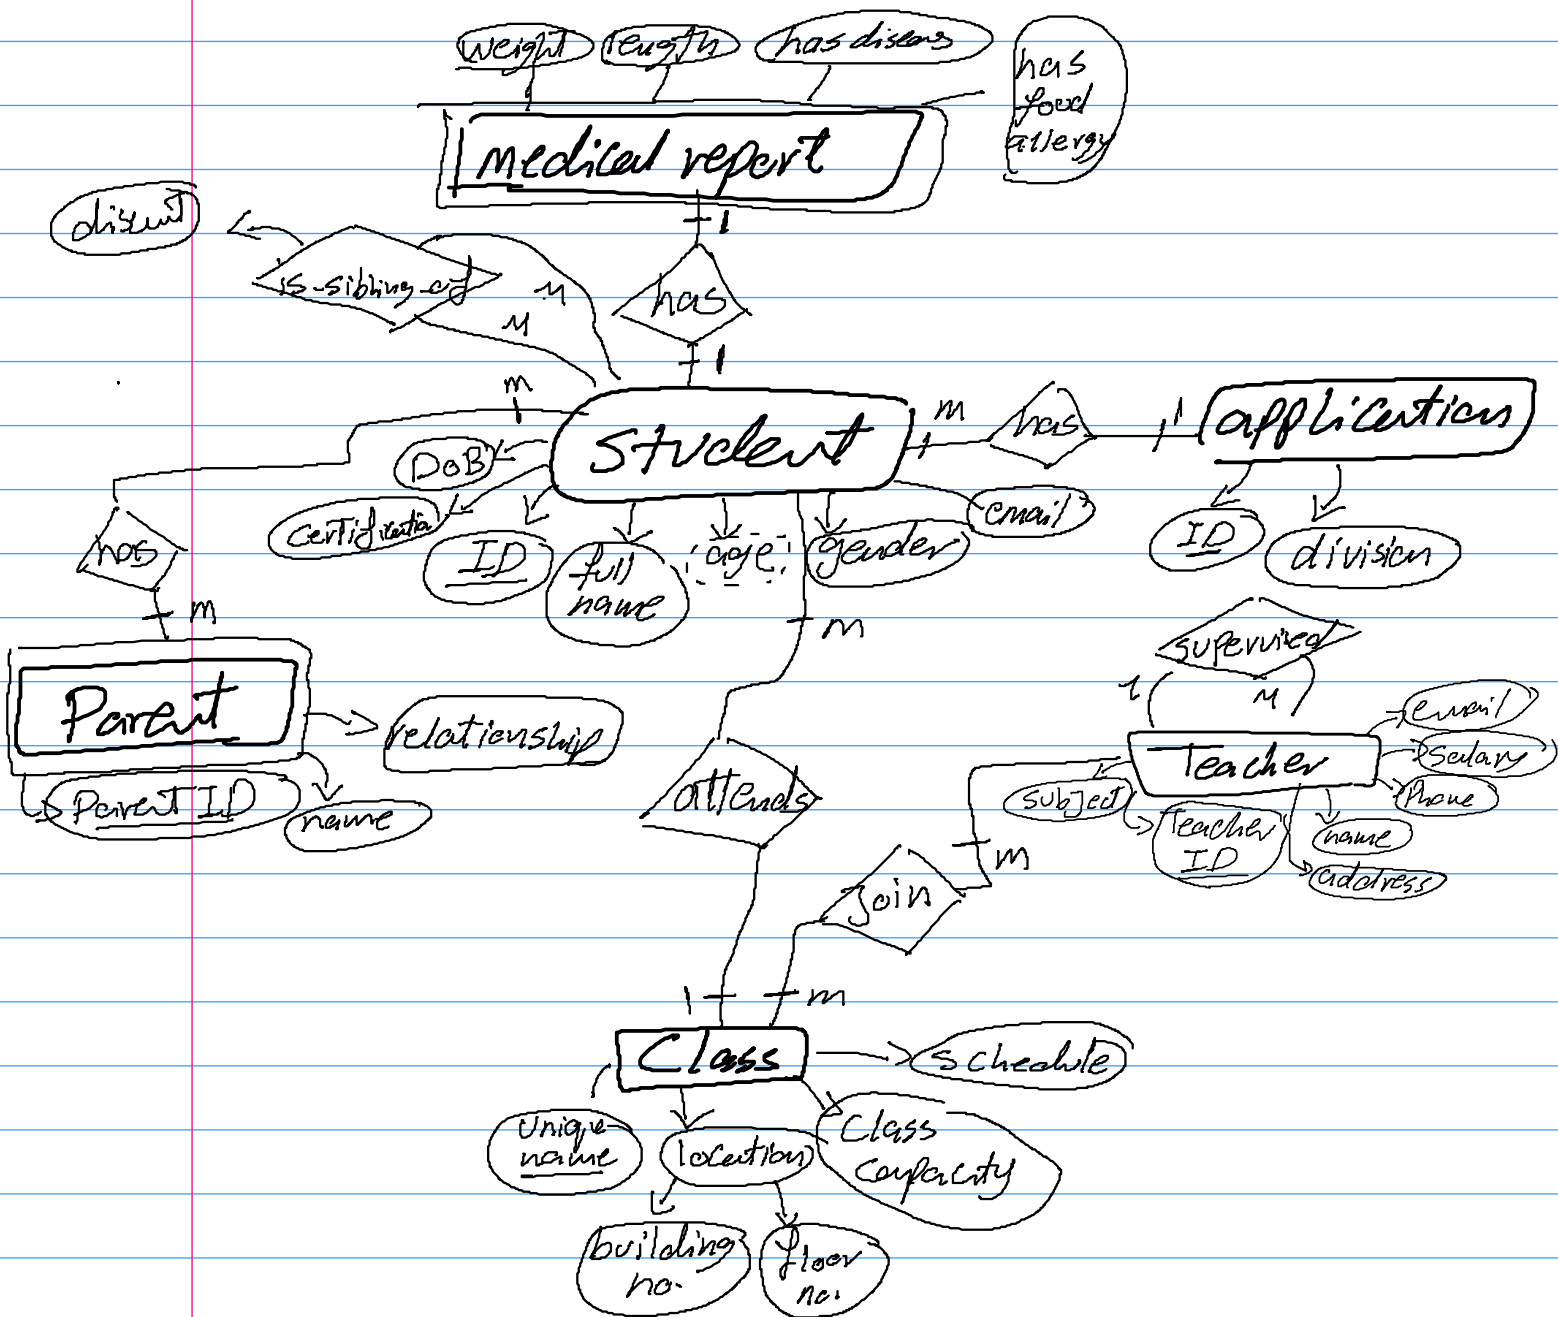 weight length has diseas
has
food
allergy
medical report
1
is-sibling-of
M
M
has
1
m
student
m
has
1
application
DoB
certification
ID
full
name
age
gender
email
ID
division
has
m
m
Parent
relationship
Parent ID
name
supervised
1
M
Teacher
email
salary
Phone
name
address
subject
Teacher
ID
attends
m
Join
1
m
Class
schedule
Unique
name
location
Class
capacity
building
no.
floor
no.